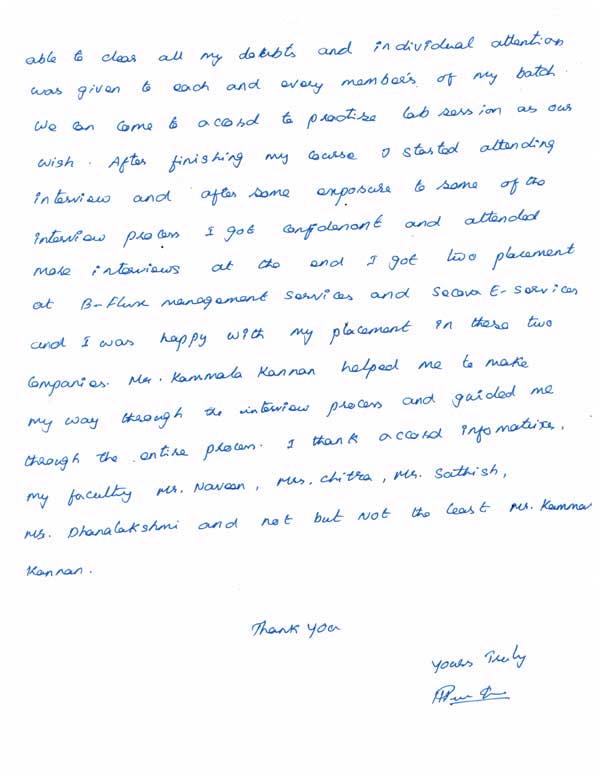 able to clear all my doubts and individual attention
was given to each and every member's of my batch.
We can come to accord to practise lab session as our
wish. After finishing my course I started attending
interview and after some exposure to some of the
interview process I got confidenant and attended
more interviews at the end I got two placement
at B-Flux management services and Secova E-Services
and I was happy with my placement in these two
companies. Mr. Kammala Kannan helped me to make
my way through the interview process and guided me
through the entire process. I thank accord informatixs,
my faculty Mr. Naveen, Mrs. Chitra, Mr. Sathish,
Ms. Dhanalakshmi and not but Not the least Mr. Kamma
Kannan.
Thank you
Yours Truly